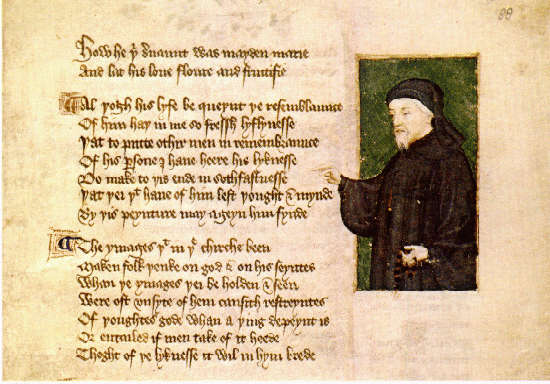 88
How he þͥ ẜuaunt was mayden marie
And lat his loue floure and fructifie
Al þogh his lyfe be queynt þe resemblaunce
Of him haþ in me so fressh lyflynesse
Þat to putte othir men in remembraunce
Of his ꝑsone I haue heere his lyknesse
Do make to þis ende in sothfastnesse
Þat þei þͭ haue of him left þought & mynde
By þis peynture may ageyn him fynde
The ymages þͭ in þͤ chirche been
Maken folk þenke on god & on his seyntes
Whan þe ymages þei be holden & seen
Were oft vnsyte of hem causith restreyntes
Of þoughtes gode whan a þing depeynt is
Or entailed if men take of it heede
Thoght of þe lyknesse it wil in hym brede